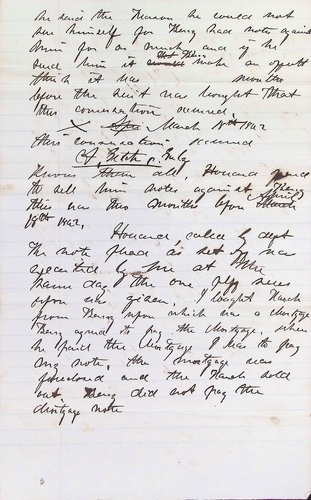 he said the reason he could not
sue himself for Being had notes against
him for so much and if he
sued him it would make an offsett
think it was months
before the suit was brought that
this conversation occurred.
March 18th 1892
this conversation occurred
Knows them all, Howard
to sell him notes against Being
this was two months before March
18th 1892.
Howard, called by deft
The note plead as set off was
executed by me at the
same day of the one plff sues
upon was given, I bought Ranch
from Being upon which was a Mortgage
Being agreed to pay the Mortgage, when
he paid the Mortgage I was to pay
my note, the mortgage was
foreclosed and the Ranch sold
out Being did not pay the
mortgage note